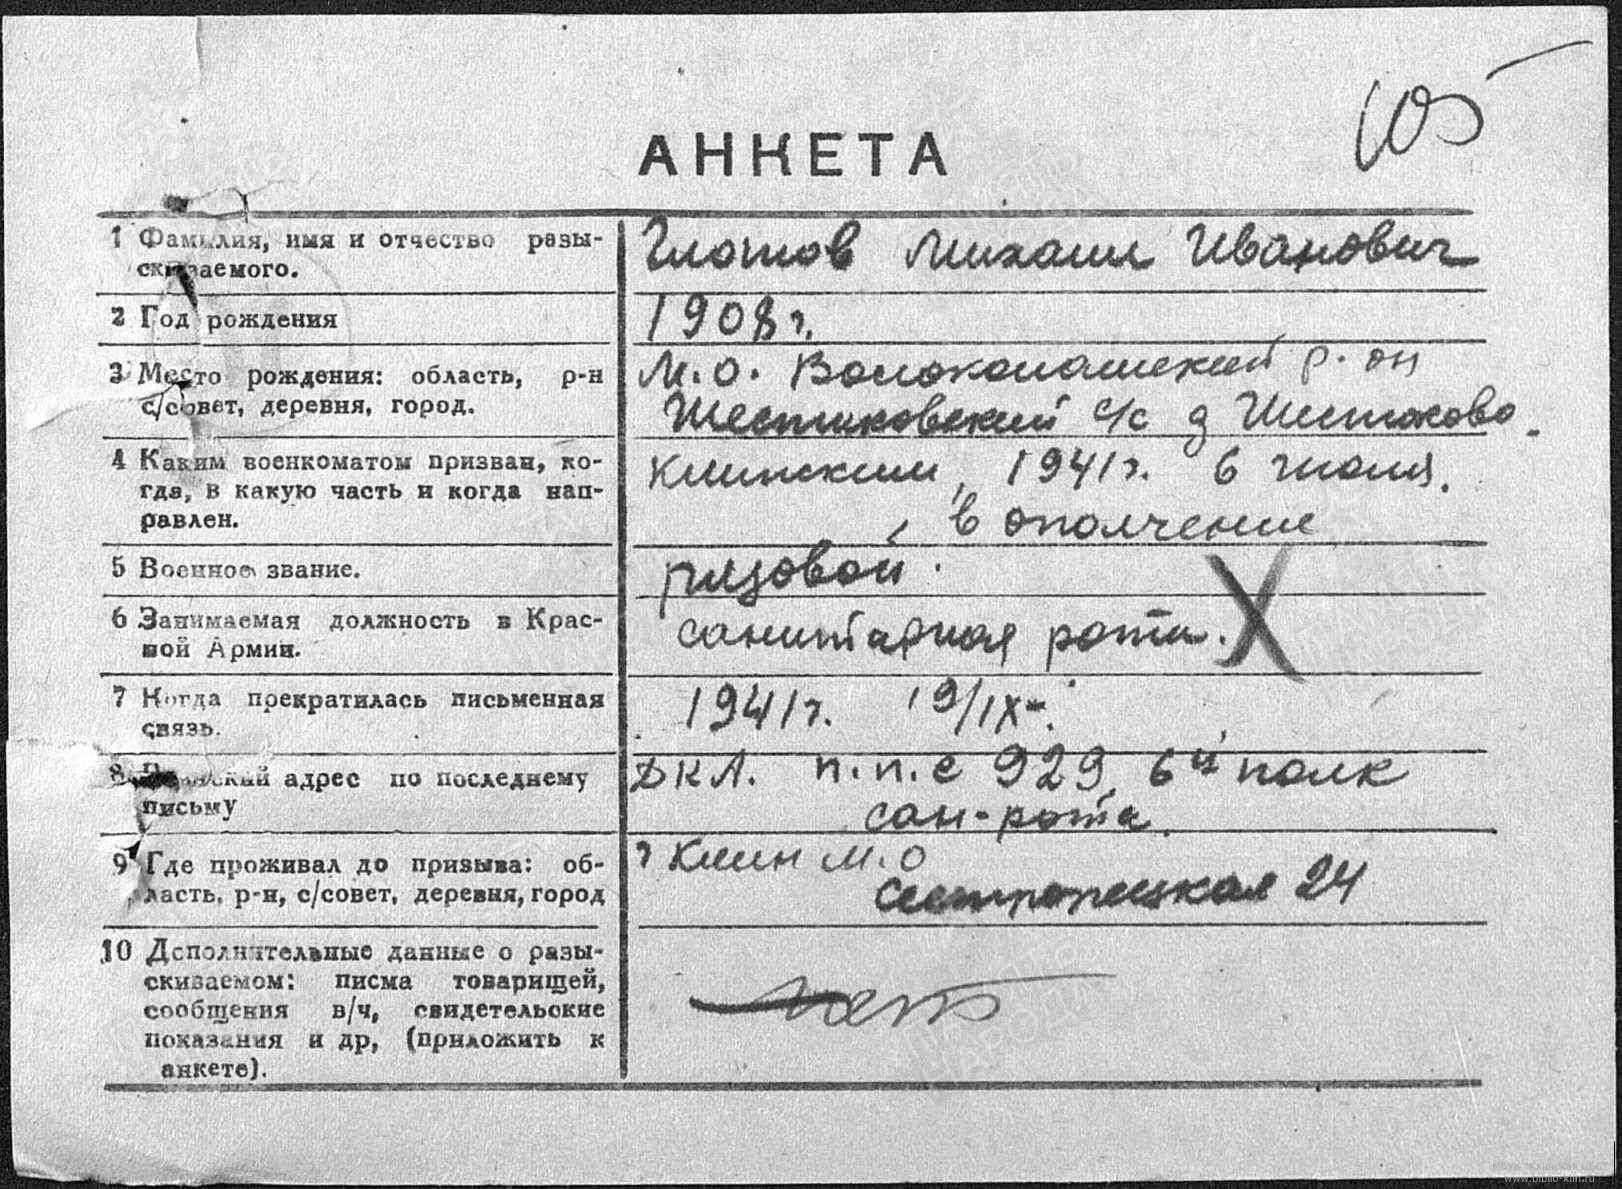 105
АНКЕТА
1 Фамилия, имя и отчество разы-
скиваемого.
Глотов Михаил Иванович
2 Год рождения
1908 г.
3 Место рождения: область, р-н
с/совет, деревня, город.
М.О. Волоколамский р-он
Шестаковский с/с д Шестаково.
4 Каким военкоматом призван, ко-
гда, в какую часть и когда нап-
равлен.
Клинским, 1941 г. 6 июля,
в ополчение
5 Военное звание.
рядовой.
6 Занимаемая должность в Крас-
ной Армии.
санитарная рота.
7 Когда прекратилась письменная
связь.
1941 г. 19/IX-.
8 адрес по последнему
письму
ДКА. п.п.с 929, 6й полк
сан-рота.
9 Где проживал до призыва: об-
ласть, р-н, с/совет, деревня, город
г Клин М.О
24
10 Дополнительные данные о разы-
скиваемом: писма товарищей,
сообщения в/ч, свидетельские
показания и др, (приложить к
анкете).
нет
МБУК "Клинская ЦБС"
www.biblio-klin.ru